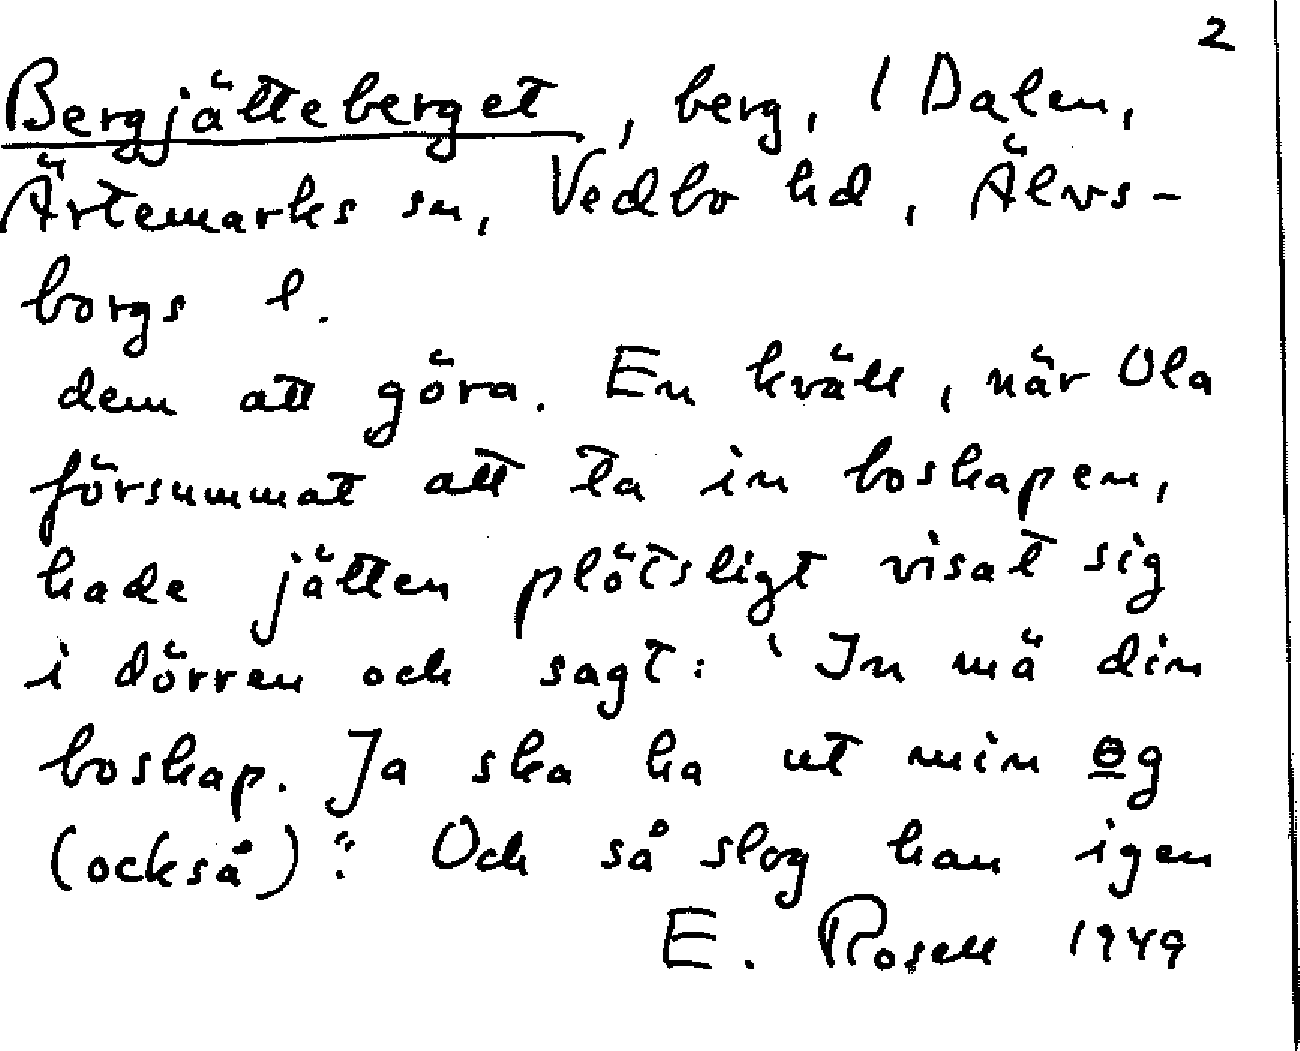 2
Bergjätteberget, berg, l Dalen,
Ärtemarks sn, Vedbo hd, Älvs-
borgs l.
dem att göra. En kväll, när Ola
försummat att ta in boskapen,
hade jätten plötsligt visat sig
i dörren och sagt: "In mä din
boskap. Ja ska ha ut min og
(också)". Och så slog han igen
E. Rosell 1949